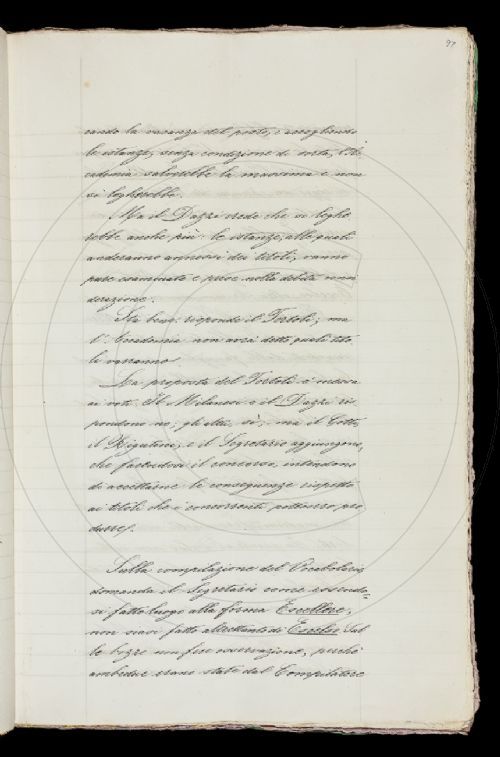 97
cando la vacanza del posto, e accogliendo
le istanze, senza condizione di sorta, l'Ac
cademia salverebbe la massima e non
si legherebbe.
Ma il Dazzi crede che si leghe
rebbe anche più: le istanze, alle quali
anderanno annessi dei titoli, vanno
pure esaminate e prese nella debita consi
derazione.
Sta bene: risponde il Tortoli; ma
l'Accademia non avrà detto quali tito
li vorranno
La proposta del Tortoli è messa
ai voti. Il Milanesi e il Dazzi ri
spondono no; gli altri, sì; ma il Cotto,
il Rigutini, e il Segretario aggiungono,
che facendosi il concorso, intendono
di accettarne le conseguenze rispetto
ai titoli che i concorrenti potessero pro
durre.
Sulla compilazione del Vocabolario,
domanda il Segretario come essendo=
si fatto luogo alla forma Eccellere,
non siasi fatto altrettanto di Sul
le bozze non fece osservazione, perchè
ambedue erano state dal Compilatore